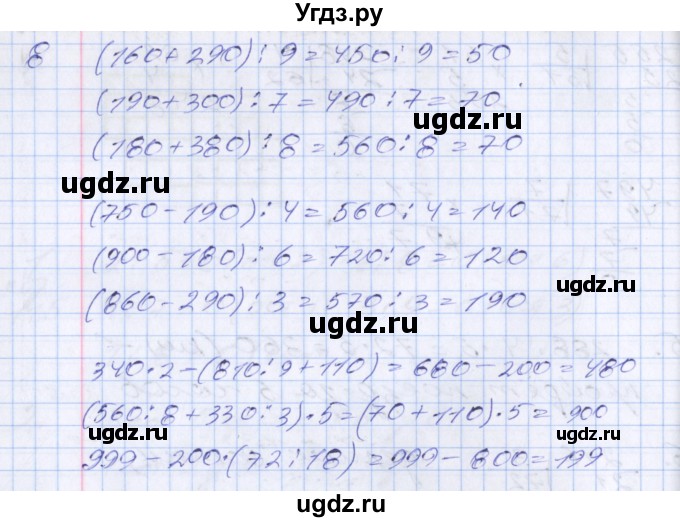 Угдз.ру
8 (160+290):9=450:9=50
(190+300):7=490:7=70
ugdz.ru
(180+380):8=560:8=70
ugdz.ru
(750-190):4=560:4=140
(900-180):6=720:6=120
ugdz.ru
(860-290):3=570:3=190
ugdz.ru
340·2-(810:9+110)=680-200=480
(560:8+330:3)·5=(70+110)·5=900
ugdz.ru
ugdz.ru
999-200·(72:18)=999-800=199
ugdz.ru